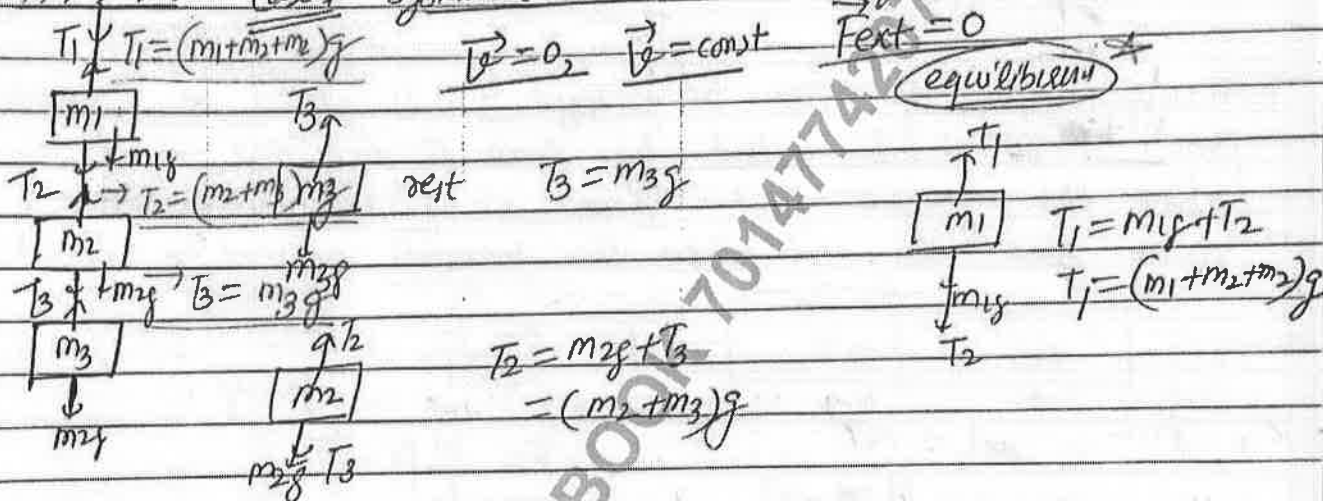 T1 T1=(m1+m2+m2)g
v=0, v=const
Fext=0
equilibrium
m1
m1g
T2 T2=(m2+m3)g
m2
m2g
T3 T3=m3g
m3
m2g
T3
m3
m3g
rest T3=m3g
T2
m2
m2g T3
T2=m2g+T3
=(m2+m3)g
T1
m1
m1g
T2
T1=m1g+T2
T1=(m1+m2+m2)g
BOOK 7014774